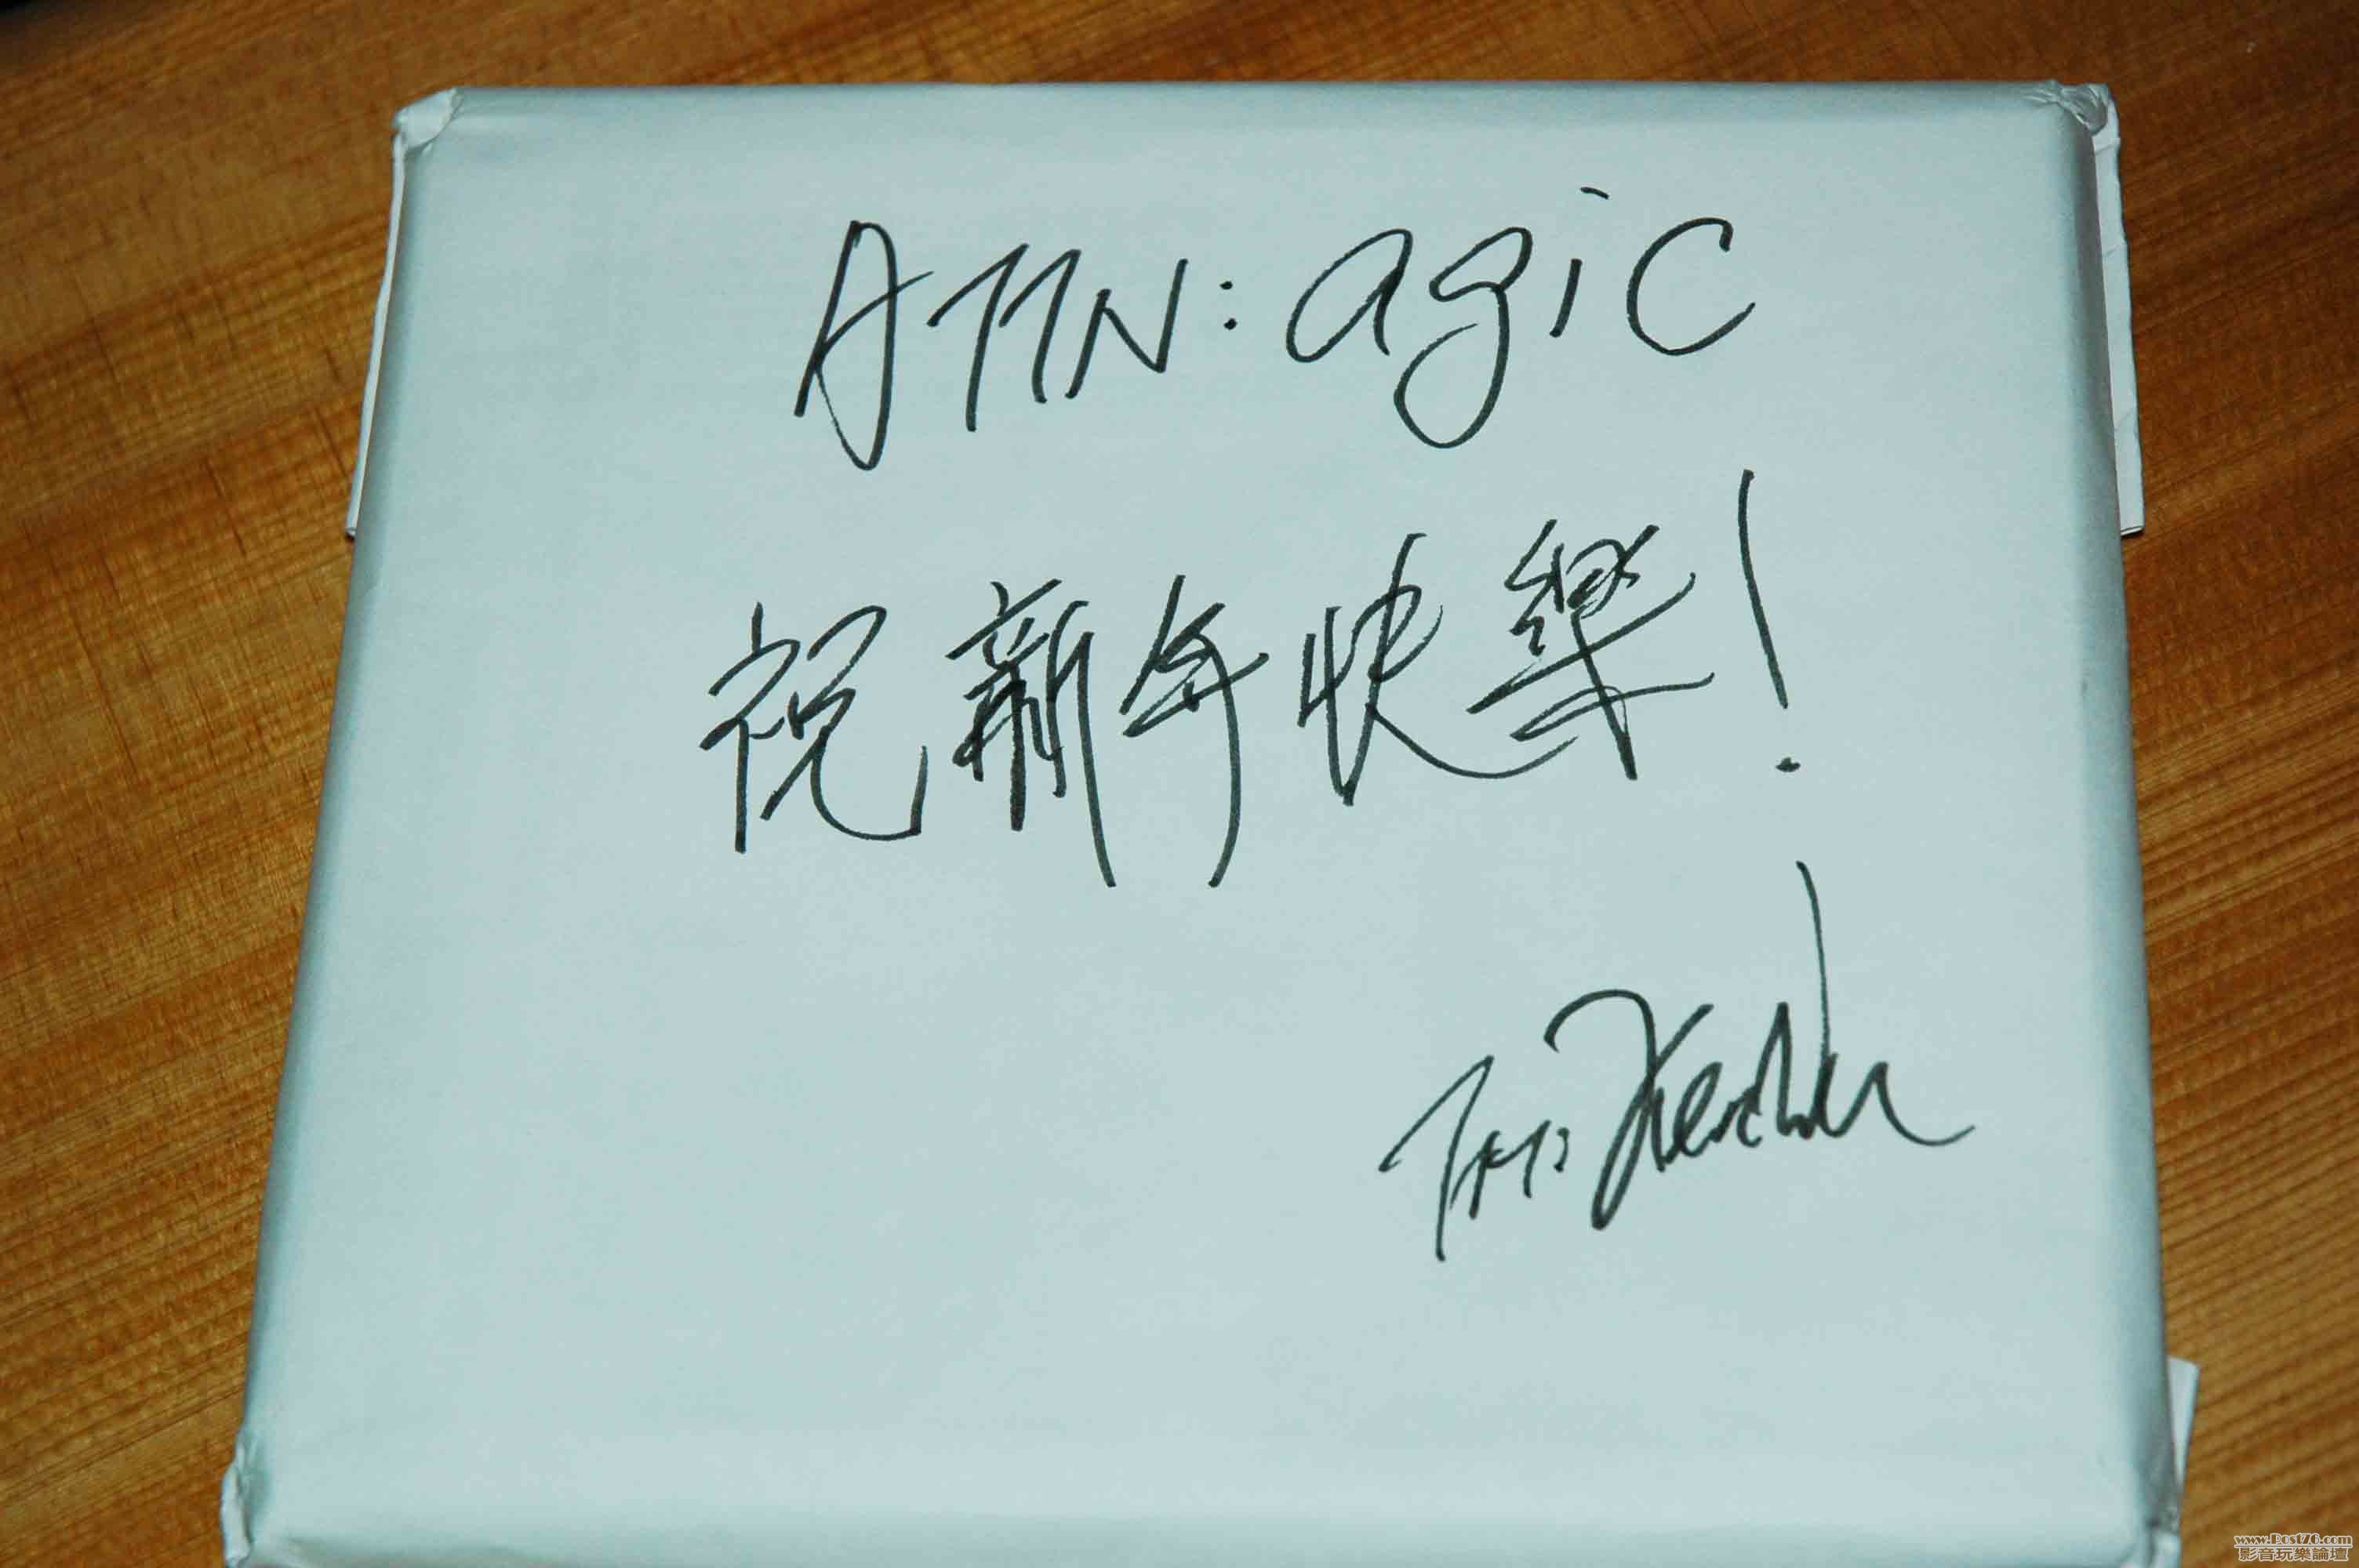 ATTN: agic
祝新年快樂!
www.Post76.com
影音玩樂論壇